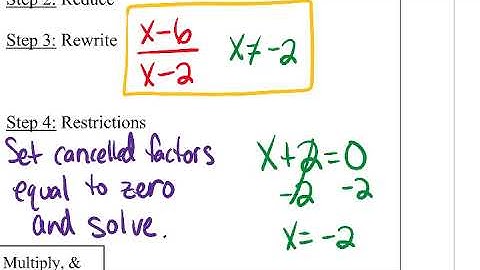 Step 2: Reduce
Step 3: Rewrite
x-6
x-2
x≠-2
Step 4: Restrictions
Set cancelled factors
equal to zero
and solve.
x+2=0
-2 -2
x=-2
Multiply, &